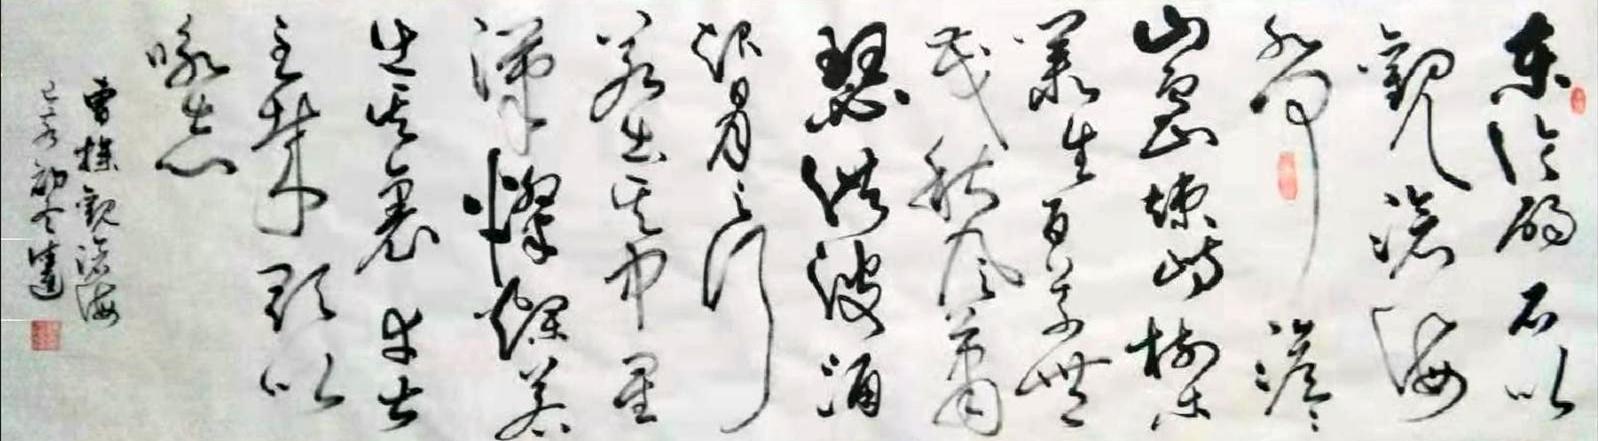 东临碣石以
觀滄海
水何澹澹
山島竦峙樹木
叢生百草豐
茂秋风萧
瑟洪波涌
起日月之行
若出其中星
漢燦爛若
出其裏幸甚
至哉歌以
咏志
曹操觀滄海
己亥初冬